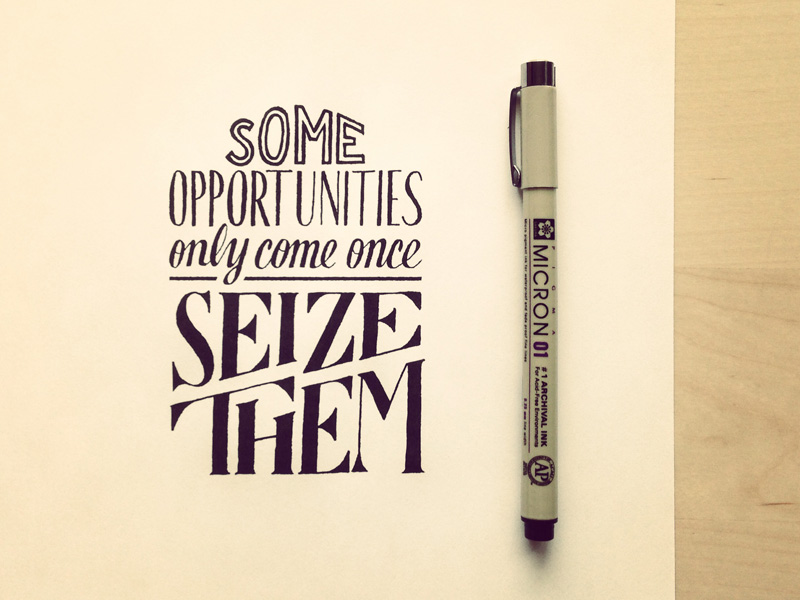 SOME
OPPORTUNITIES
only come once
SEIZE
THEM
PIGMA
MICRON 01
#1 ARCHIVAL INK
For Acid-Free Environments
AP